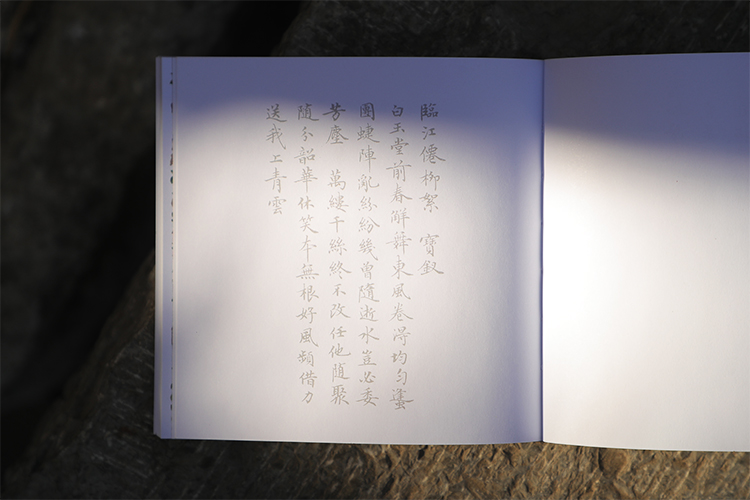 臨江僊柳絮　寶釵
白玉堂前春解舞東風卷淂均勻蜂
團蜨陣亂紛紛幾曾隨逝水豈必委
芳塵　萬縷千絲終不改任他随聚
隨分韶華休笑本無根好風頻借力
送我上青雲